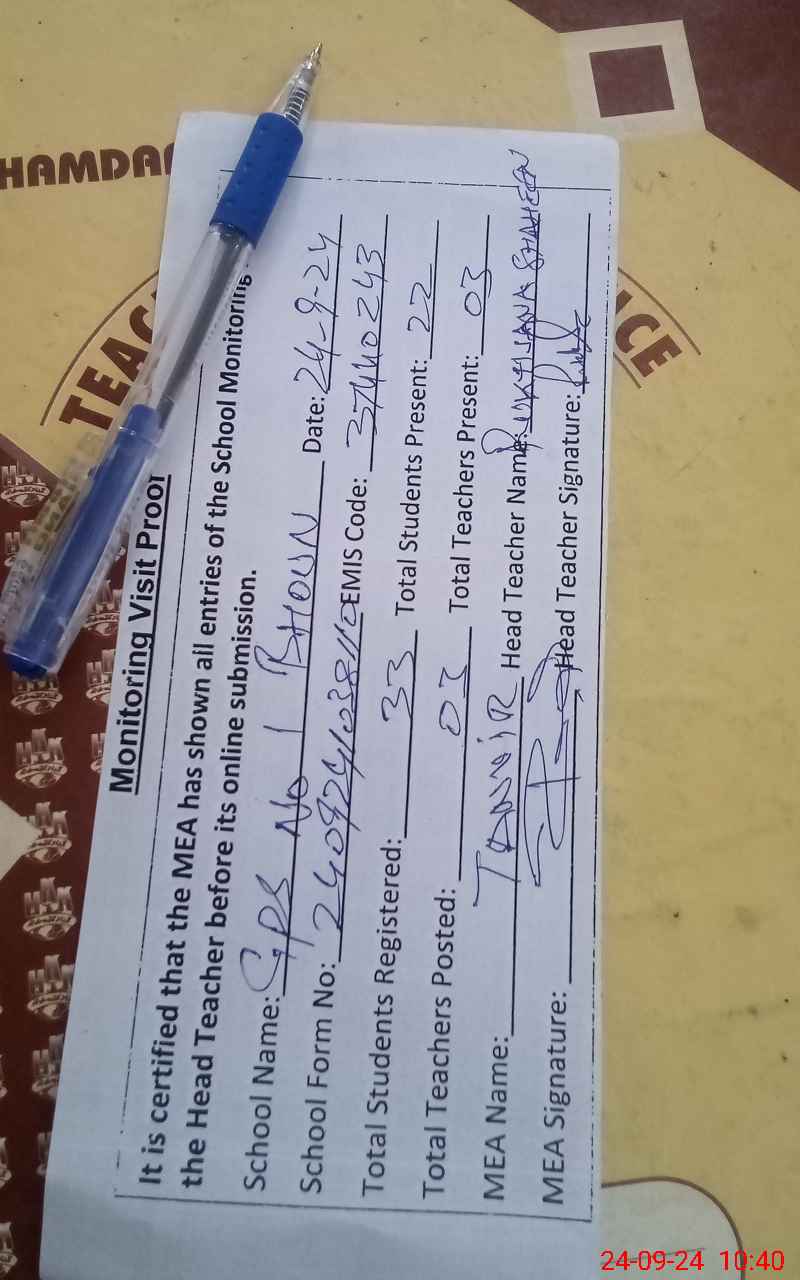 HAMDAR
TEAC
ICE
Monitoring Visit Proof
It is certified that the MEA has shown all entries of the School Monitoring
the Head Teacher before its online submission.
School Name: GPS No 1 BHOUN Date: 24-9-24
School Form No: EMIS Code: 37440243
Total Students Registered: 33 Total Students Present: 22
Total Teachers Posted: 03 Total Teachers Present: 03
MEA Name: TANVIR Head Teacher Name: RUKHSANA SHAHEEN
MEA Signature: Head Teacher Signature:
24-09-24 10:40